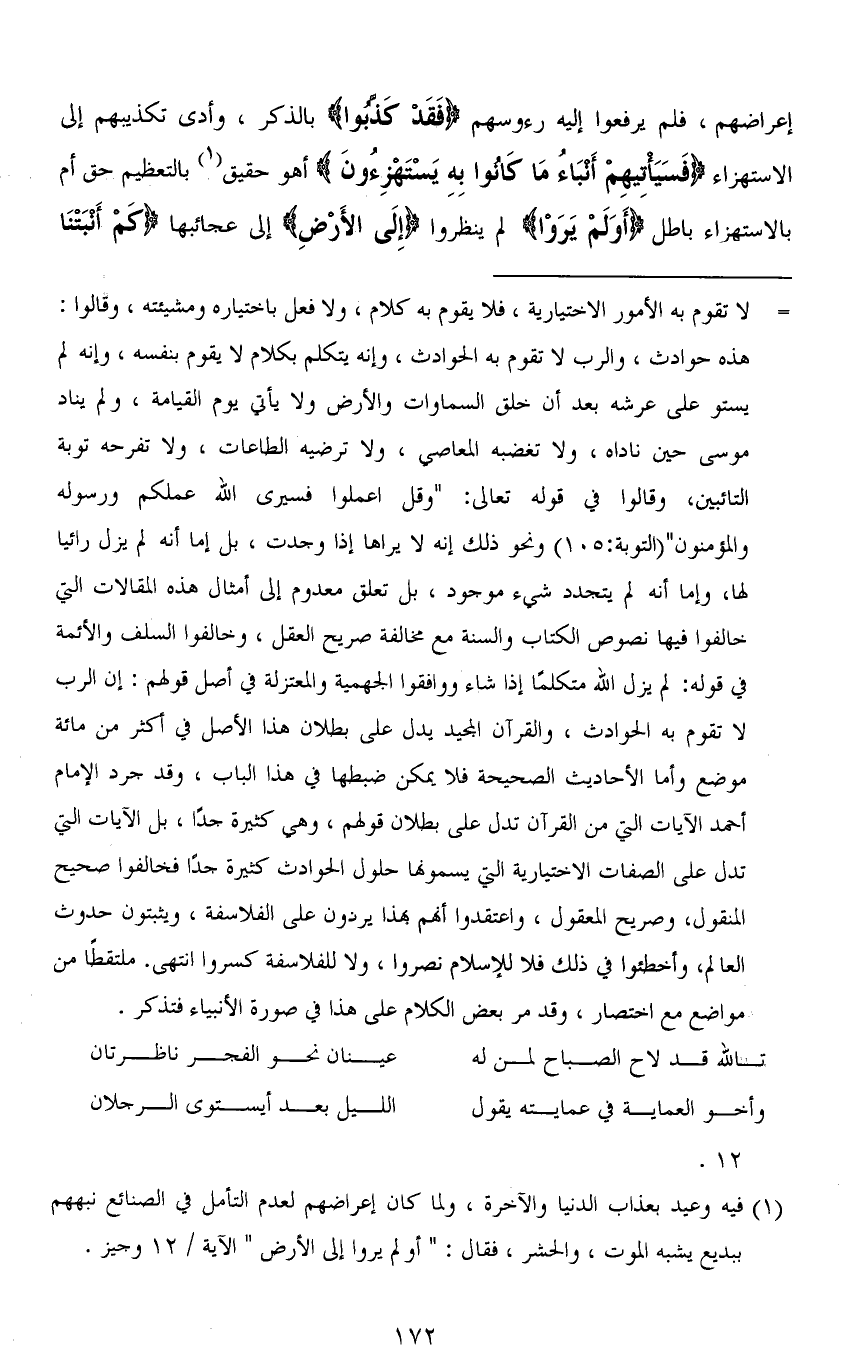 إعراضهم ، فلم يرفعوا إليه رءوسهم ﴿فَقَدْ كَذَّبُوا﴾ بالذكر ، وأدى تكذيبهم إلى
الاستهزاء ﴿فَسَيَأْتِيهِمْ أَنْبَاءُ مَا كَانُوا بِهِ يَسْتَهْزِءُونَ﴾ أهو حقيق(١) بالتعظيم حق أم
بالاستهزاء باطل ﴿أَوَلَمْ يَرَوْا﴾ لم ينظروا ﴿إِلَى الأَرْضِ﴾ إلى عجائبها ﴿كَمْ أَنْبَتْنَا
= لا تقوم به الأمور الاختيارية ، فلا يقوم به كلام ، ولا فعل باختياره ومشيئته ، وقالوا :
هذه حوادث ، والرب لا تقوم به الحوادث ، وإنه يتكلم بكلام لا يقوم بنفسه ، وإنه لم
يستو على عرشه بعد أن خلق السماوات والأرض ولا يأتي يوم القيامة ، ولم يناد
موسى حين ناداه ، ولا تغضبه المعاصي ، ولا ترضيه الطاعات ، ولا تفرحه توبة
التائبين، وقالوا في قوله تعالى: "وقل اعملوا فسيرى الله عملكم ورسوله
والمؤمنون"(التوبة:١٠٥) ونحو ذلك إنه لا يراها إذا وجدت ، بل إما أنه لم يزل رائيا
لها، وإما أنه لم يتجدد شيء موجود ، بل تعلق معدوم إلى أمثال هذه المقالات التي
خالفوا فيها نصوص الكتاب والسنة مع مخالفة صريح العقل ، وخالفوا السلف والأئمة
في قوله: لم يزل الله متكلمًا إذا شاء ووافقوا الجهمية والمعتزلة في أصل قولهم : إن الرب
لا تقوم به الحوادث ، والقرآن المجيد يدل على بطلان هذا الأصل في أكثر من مائة
موضع وأما الأحاديث الصحيحة فلا يمكن ضبطها في هذا الباب ، وقد جرد الإمام
أحمد الآيات التي من القرآن تدل على بطلان قولهم ، وهي كثيرة جدًا ، بل الآيات التي
تدل على الصفات الاختيارية التي يسمونها حلول الحوادث كثيرة جدًا فخالفوا صحيح
المنقول، وصريح المعقول ، واعتقدوا أنهم بهذا يردون على الفلاسفة ، ويثبتون حدوث
العالم، وأخطئوا في ذلك فلا للإسلام نصروا ، ولا للفلاسفة كسروا انتهى. ملتقطًا من
مواضع مع اختصار ، وقد مر بعض الكلام على هذا في صورة الأنبياء فتذكر .
تـالله قـد لاح الصـباح لمـن له عيـنان نحـو الفجـر ناظـرتان
وأخـو العمايـة في عمايـته يقول الليـل بعـد أيسـتوى الـرجلان
١٢ .
(١) فيه وعيد بعذاب الدنيا والآخرة ، ولما كان إعراضهم لعدم التأمل في الصنائع نبههم
ببديع يشبه الموت ، والحشر ، فقال : " أو لم يروا إلى الأرض " الآية / ١٢ وجيز .
١٧٢